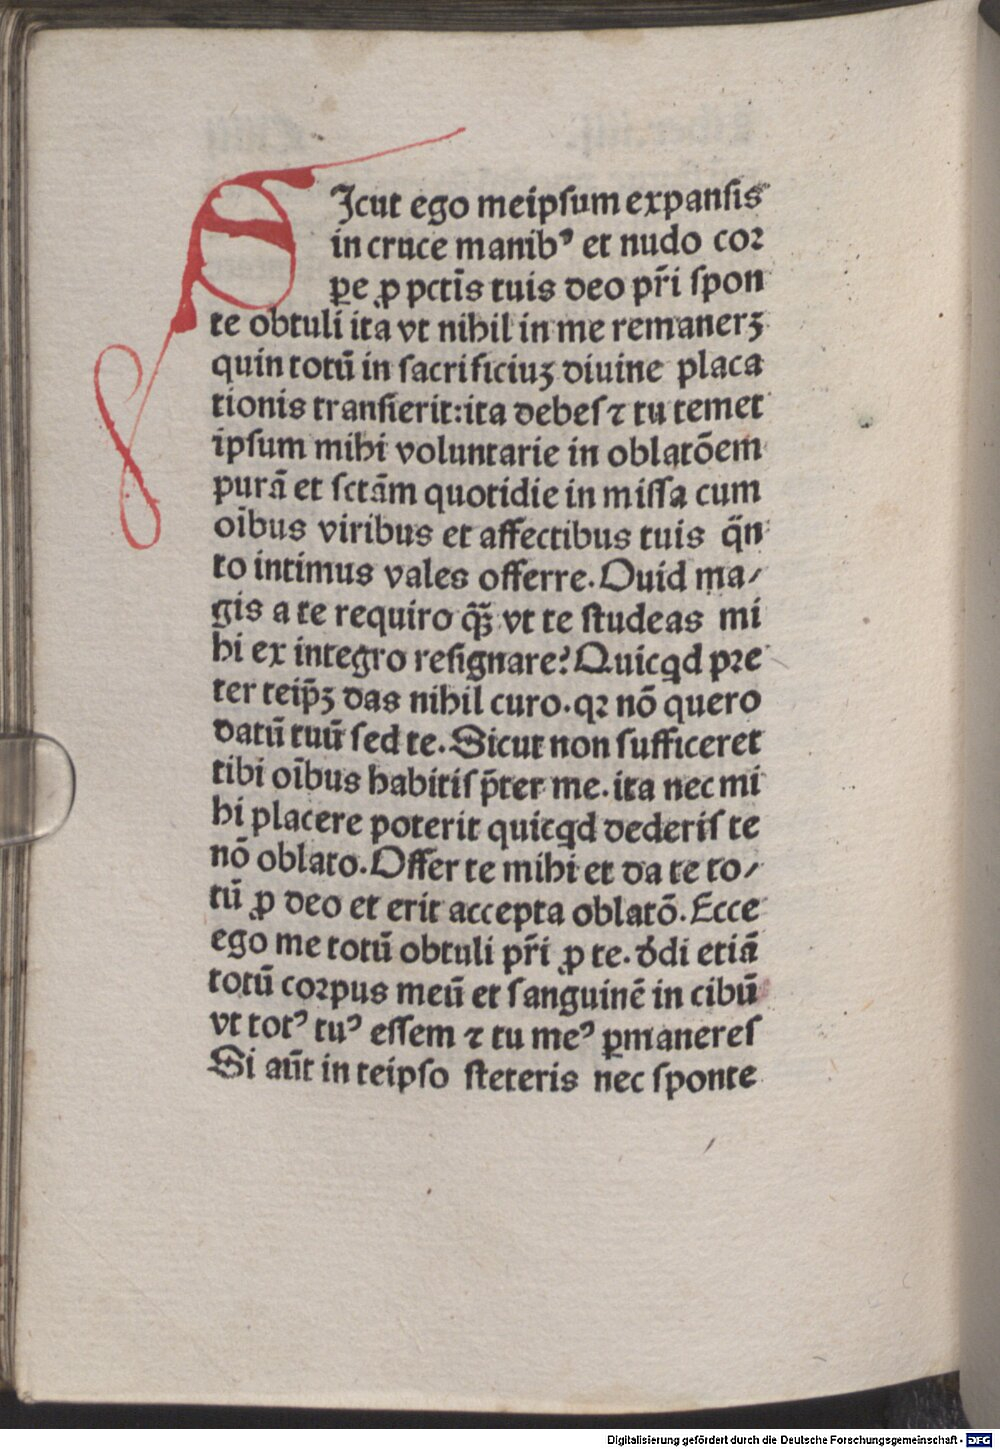 SIcut ego meipſum expanſis
in cruce manibꝰ et nudo coꝛ
ꝑe ꝓ pctīs tuis deo pr̄i ſpon
te obtuli ita vt nihil in me remanerꝫ
quin totū in ſacrificiuꝫ diuine placa
tionis tranſierit:ita debeſ ⁊ tu temet
ipſum mihi voluntarie in oblatōem
purā et ſctām quotidie in miſſa cum
oībus viribus et affectibus tuis q̄n
to intimus vales offerre. Quid ma⸗
gis a te requiro qꝫ̄ vt te ſtudeas mi
hi ex integro reſignare? Quicqd pꝛe
ter teip̄ꝫ das nihil curo. qꝛ nō quero
datū tuū ſed te. Sicut non ſufficeret
tibi oībus habitiſ p̄ter me. ita nec mi
hi placere poterit quicqd dederiſ te
nō oblato. Offer te mihi et da te to⸗
tū ꝓ deo et erit accepta oblatō. Ecce
ego me totū obtuli pr̄i ꝓ te. dedi etiā
totū coꝛpus meū et ſanguinē in cibū
vt totꝰ tuꝰ eſſem ⁊ tu meꝰ ꝑmanereſ
Si aūt in teipſo ſteteris nec ſponte
Digitalisierung gefördert durch die Deutsche Forschungsgemeinschaft - DFG